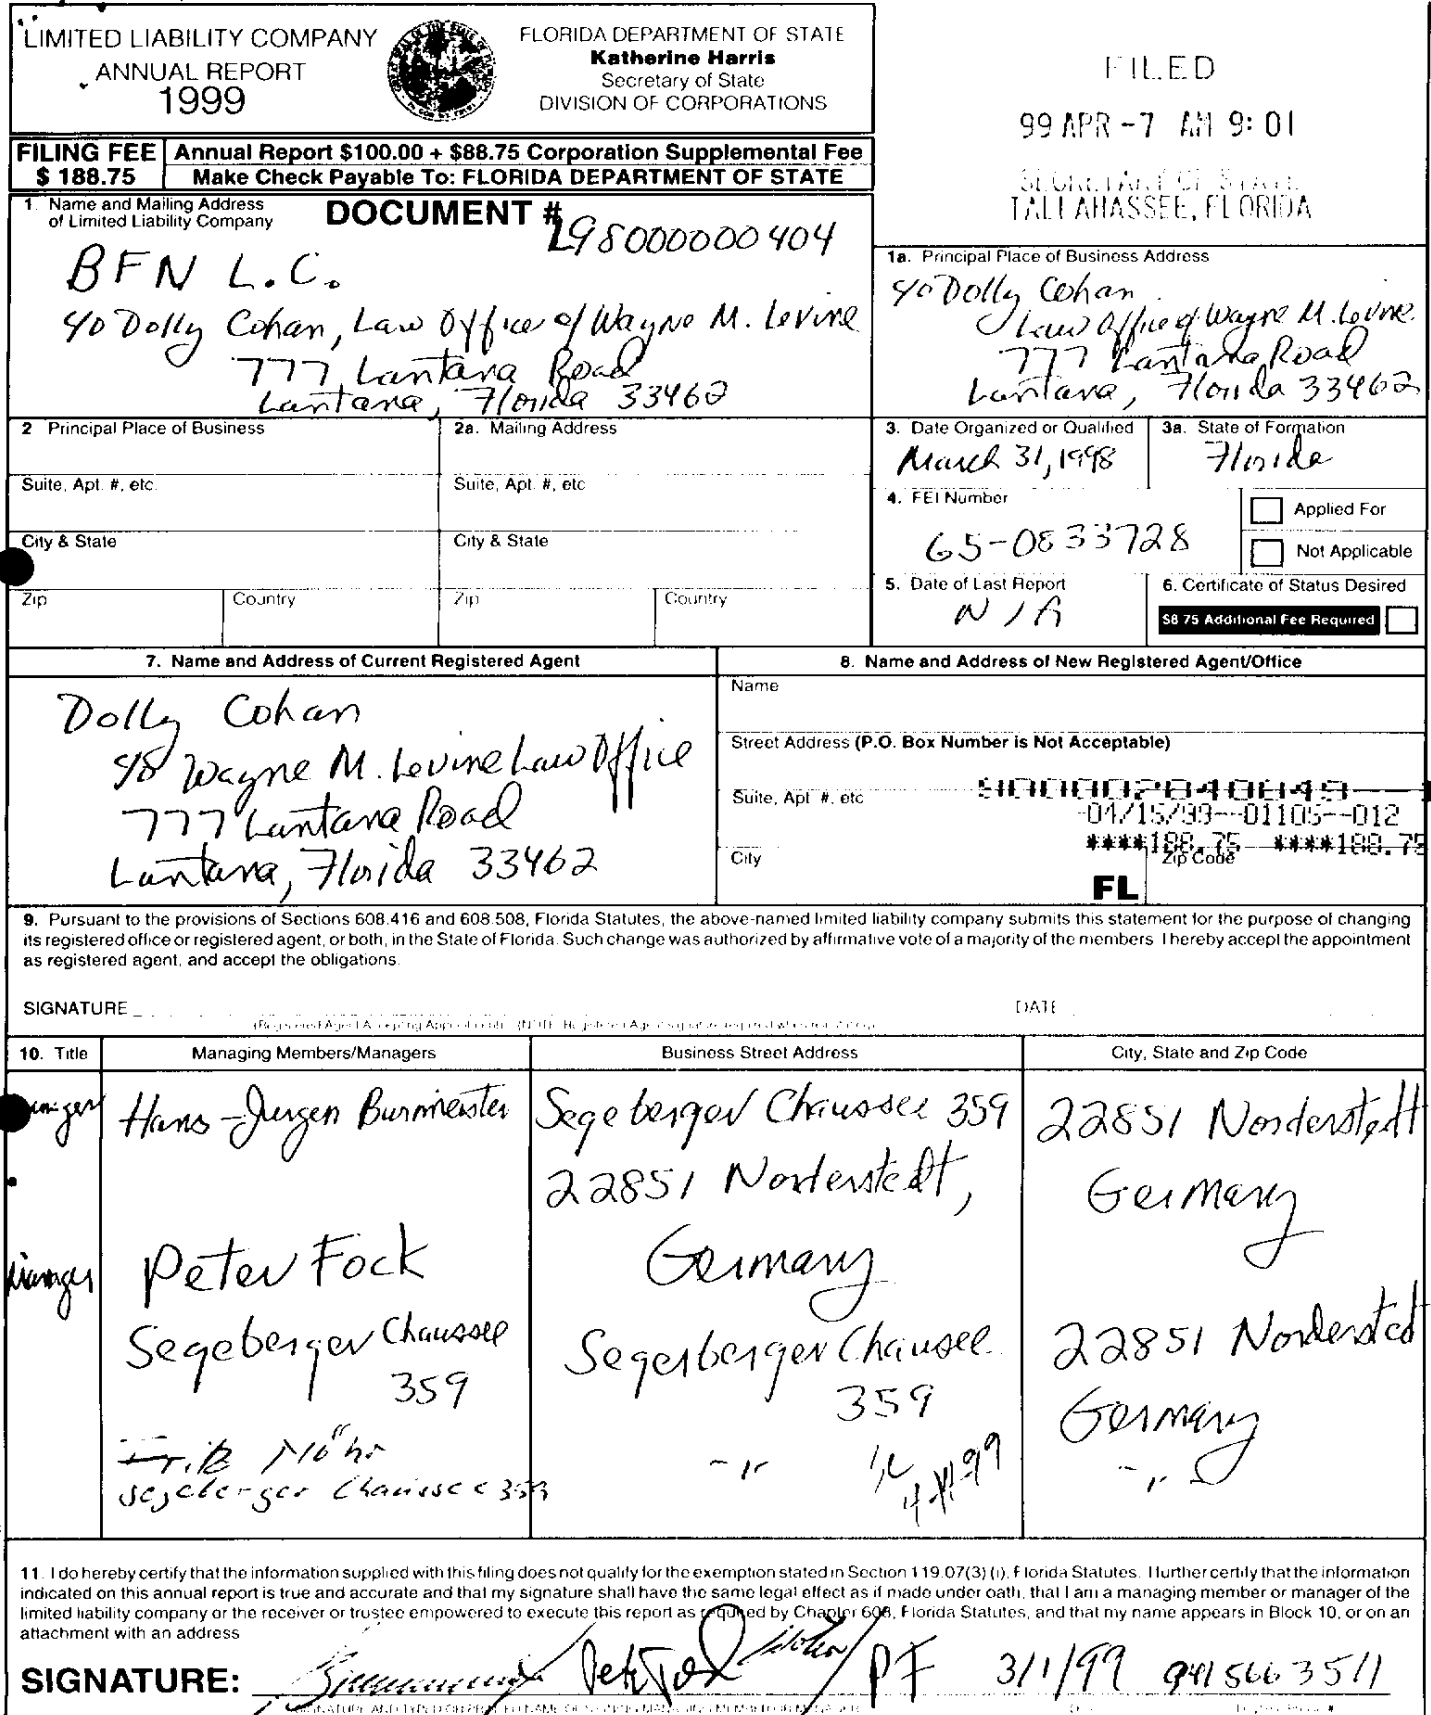 LIMITED LIABILITY COMPANY
ANNUAL REPORT
1999
FLORIDA DEPARTMENT OF STATE
Katherine Harris
Secretary of State
DIVISION OF CORPORATIONS
FILED
99 APR -7 AM 9: 01
SECRETARY OF STATE
TALLAHASSEE, FLORIDA
FILING FEE
$ 188.75
Annual Report $100.00 + $88.75 Corporation Supplemental Fee
Make Check Payable To: FLORIDA DEPARTMENT OF STATE
1. Name and Mailing Address
of Limited Liability Company
DOCUMENT #
L98000000404
BFN L.C.
c/o Dolly Cohan, Law Office of Wayne M. Levine
777 Lantana Road
Lantana, Florida 33462
1a. Principal Place of Business Address
c/o Dolly Cohan
Law Office of Wayne M. Levine
777 Lantana Road
Lantana, Florida 33462
2 Principal Place of Business
2a. Mailing Address
Suite, Apt. #, etc.
Suite, Apt. #, etc
City & State
City & State
Zip
Country
Zip
Country
3. Date Organized or Qualified
March 31, 1998
3a. State of Formation
Florida
4. FEI Number
65-0833728
Applied For
Not Applicable
5. Date of Last Report
N/A
6. Certificate of Status Desired
$8 75 Additional Fee Required
7. Name and Address of Current Registered Agent
Dolly Cohan
c/o Wayne M. Levine Law Office
777 Lantana Road
Lantana, Florida 33462
8. Name and Address of New Registered Agent/Office
Name
Street Address (P.O. Box Number is Not Acceptable)
Suite, Apt #, etc
-04/15/99--01105--012
****188.75 ****188.75
City
FL
Zip Code
9. Pursuant to the provisions of Sections 608.416 and 608.508, Florida Statutes, the above-named limited liability company submits this statement for the purpose of changing
its registered office or registered agent, or both, in the State of Florida. Such change was authorized by affirmative vote of a majority of the members I hereby accept the appointment
as registered agent, and accept the obligations.
SIGNATURE
DATE
10. Title
Managing Members/Managers
Business Street Address
City, State and Zip Code
Manager
Hans-Jurgen Burmeister
Segeberger Chaussee 359
22851 Norderstedt,
Germany
22851 Norderstedt
Germany
Manager
Peter Fock
Segeberger Chaussee
359
Segesberger Chausee
359
22851 Nordersted
Germany
Möhr
Segeberger Chaussee 359
-"-
-"-
11. I do hereby certify that the information supplied with this filing does not qualify for the exemption stated in Section 119.07(3) (i), Florida Statutes. I further certify that the information
indicated on this annual report is true and accurate and that my signature shall have the same legal effect as if made under oath, that I am a managing member or manager of the
limited liability company or the receiver or trustee empowered to execute this report as required by Chapter 608, Florida Statutes, and that my name appears in Block 10, or on an
attachment with an address
SIGNATURE:
PF 3/1/99 941 566 3511